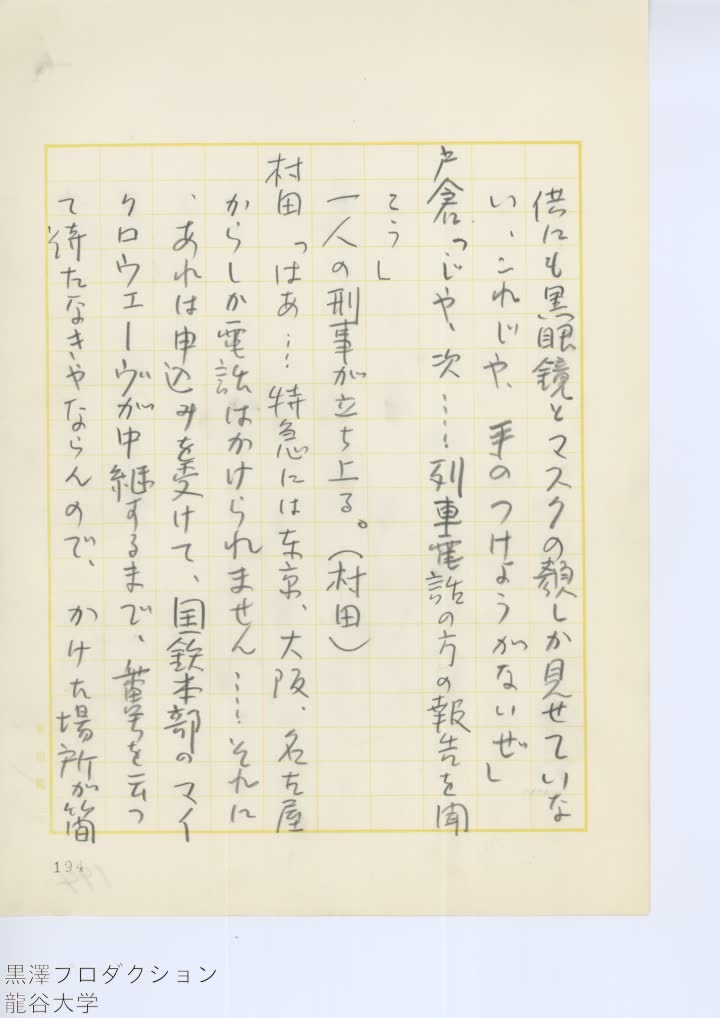 供にも黒眼鏡とマスクの顔しか見せていな
い、これじや、手のつけようがないぜ」
戸倉「じや、次……列車電話の方の報告を聞
こう」
一人の刑事が立ち上る。(村田)
村田「はあ…特急には东京、大阪、名古屋
からしか電話はかけられません……それに
、あれは申込みを受けて、国鉄本部のマイ
クロウエーヴが中継するまで、番号を云つ
て待たなきやならんので、かけた場所が簡
194
黒澤プロダクション
龍谷大学